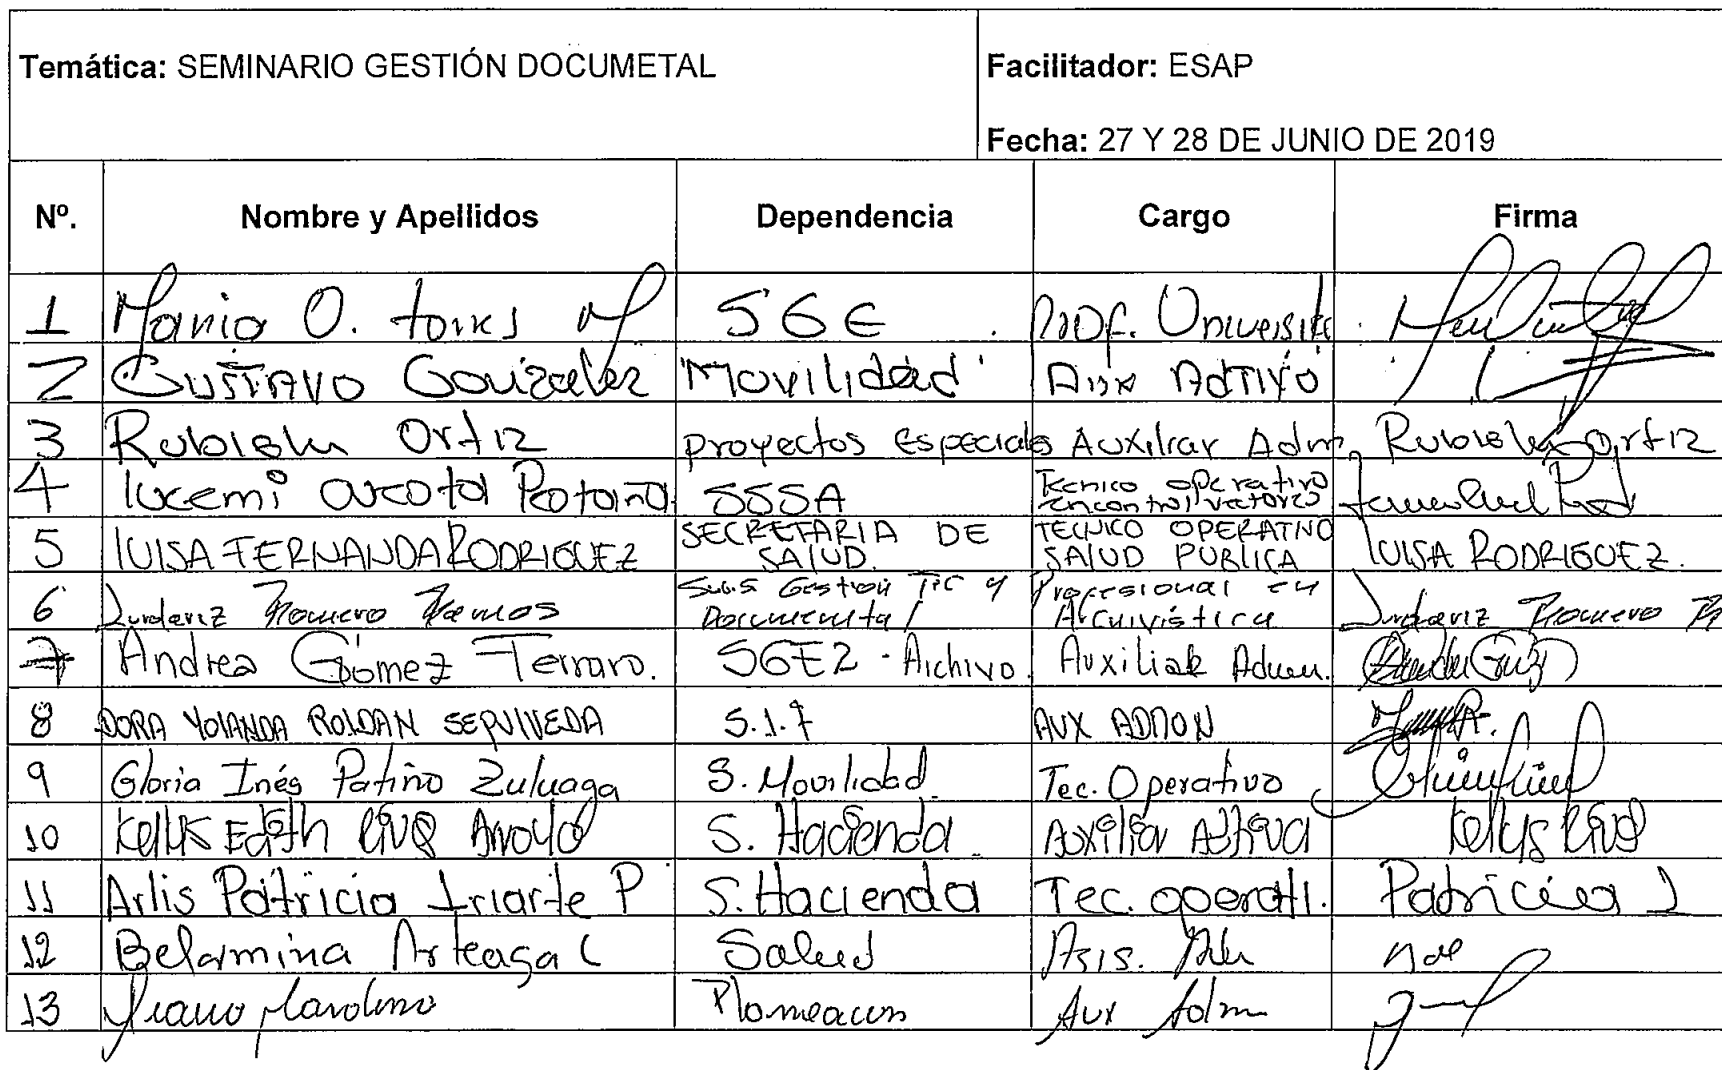 Temática: SEMINARIO GESTIÓN DOCUMETAL
Facilitador: ESAP
Fecha: 27 Y 28 DE JUNIO DE 2019
Nº. Nombre y Apellidos Dependencia Cargo Firma
1 Maria O. torres M SGE Prof. Universit
2 GUSTAVO González Movilidad Aux AdTIVO
3 Rubiela Ortiz proyectos especiales Auxiliar Adm Ortiz
4 lucemi SSSA Tecnico operativo
en control vectores
5 LUISA FERNANDA RODRIGUEZ SECRETARIA DE SALUD. TECNICO OPERATIVO SALUD PUBLICA LUISA RODRIGUEZ.
6 Romero Ramos Subs Gestión Tic y Documental Profesional en Archivística Romero R
7 Andrea Gómez SGE2 - Archivo. Auxiliar Admn.
8 DORA YOLANDA ROLDAN SEPULVEDA S.I.F AUX ADMON
9 Gloria Inés Patiño Zuluaga S. Movilidad. Tec. Operativo
10 Kellys Edith Arroyo S. Hacienda Auxiliar Adtiva Kellys
11 Arlis Patricia Iriarte P S. Hacienda Tec. operati. Patricia I
12 Belarmina Arteaga C Salud Asis.
13 Planeacion Aux Adm